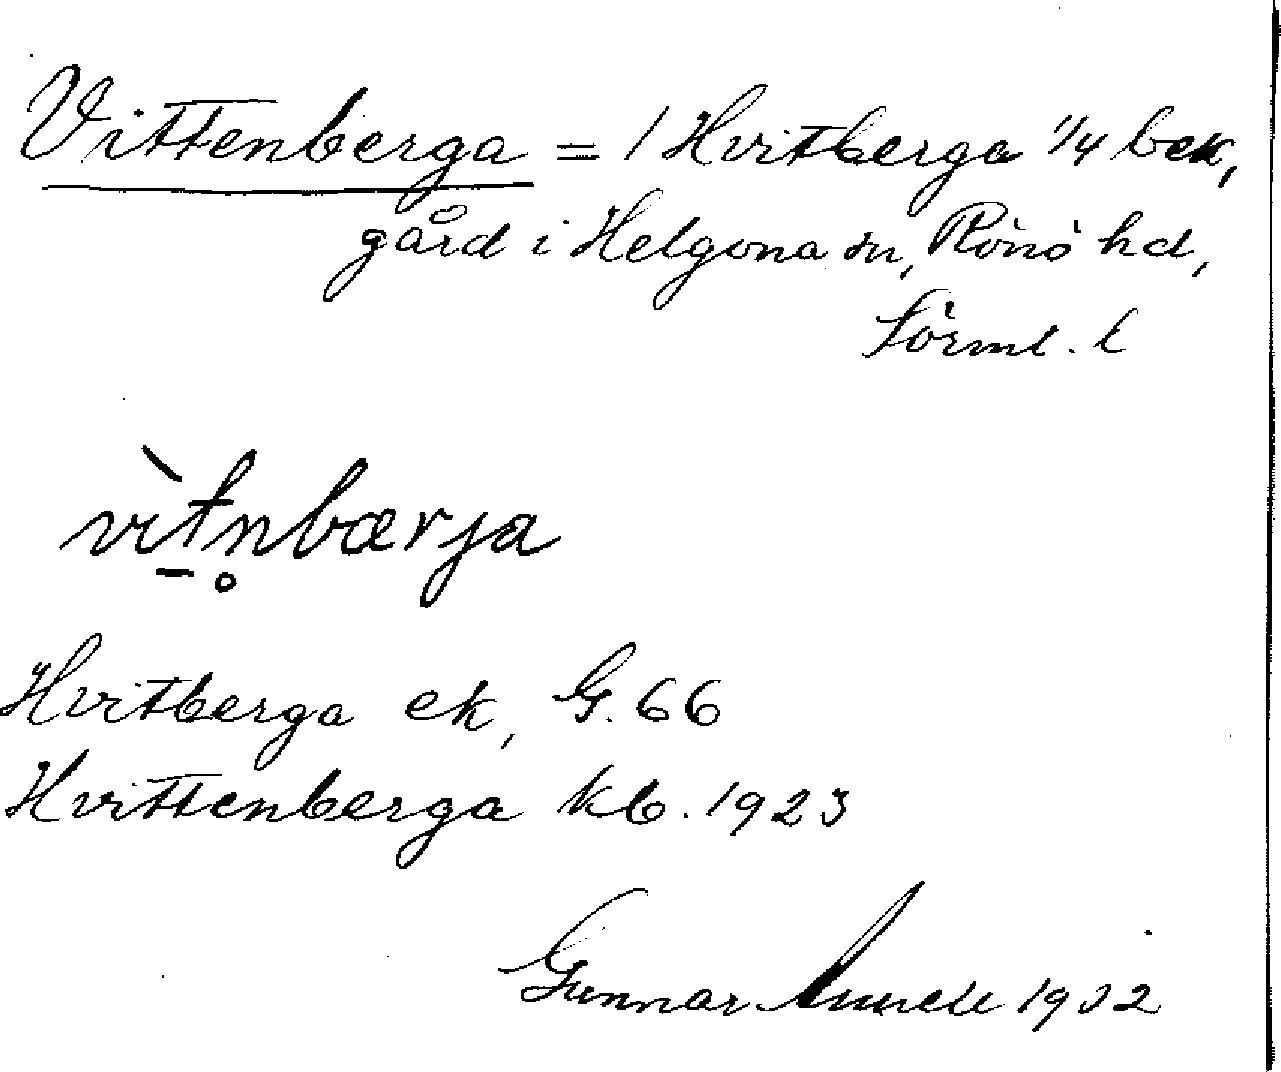 Vittenberga = 1 Hvitberga 1/4 bek,
gård i Helgona sn, Rönö hd,
Sörml. l
vìtn̥bærja
Hvitberga ek, G. 66
Hvittenberga kb. 1923
Gunnar 1932